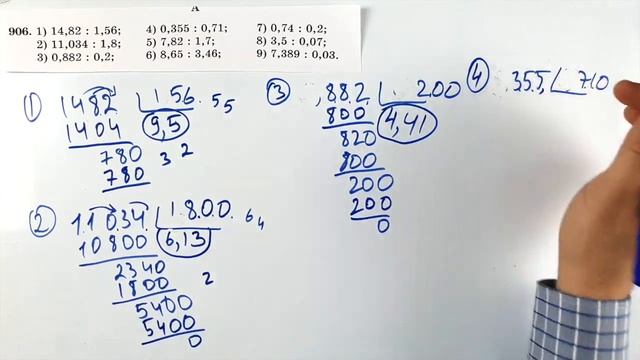 А
906. 1) 14,82 : 1,56; 4) 0,355 : 0,71; 7) 0,74 : 0,2;
2) 11,034 : 1,8; 5) 7,82 : 1,7; 8) 3,5 : 0,07;
3) 0,882 : 0,2; 6) 8,65 : 3,46; 9) 7,389 : 0,03.
1 1482 1.56. 55
1404 9,5
780 32
780
2 11.034. 1.8.0.0. 64
10800 6,13
2340
1800 2
5400
5400
0
3 ,882. 200
800 4,41
820
800
200
200
0
4 355, 710